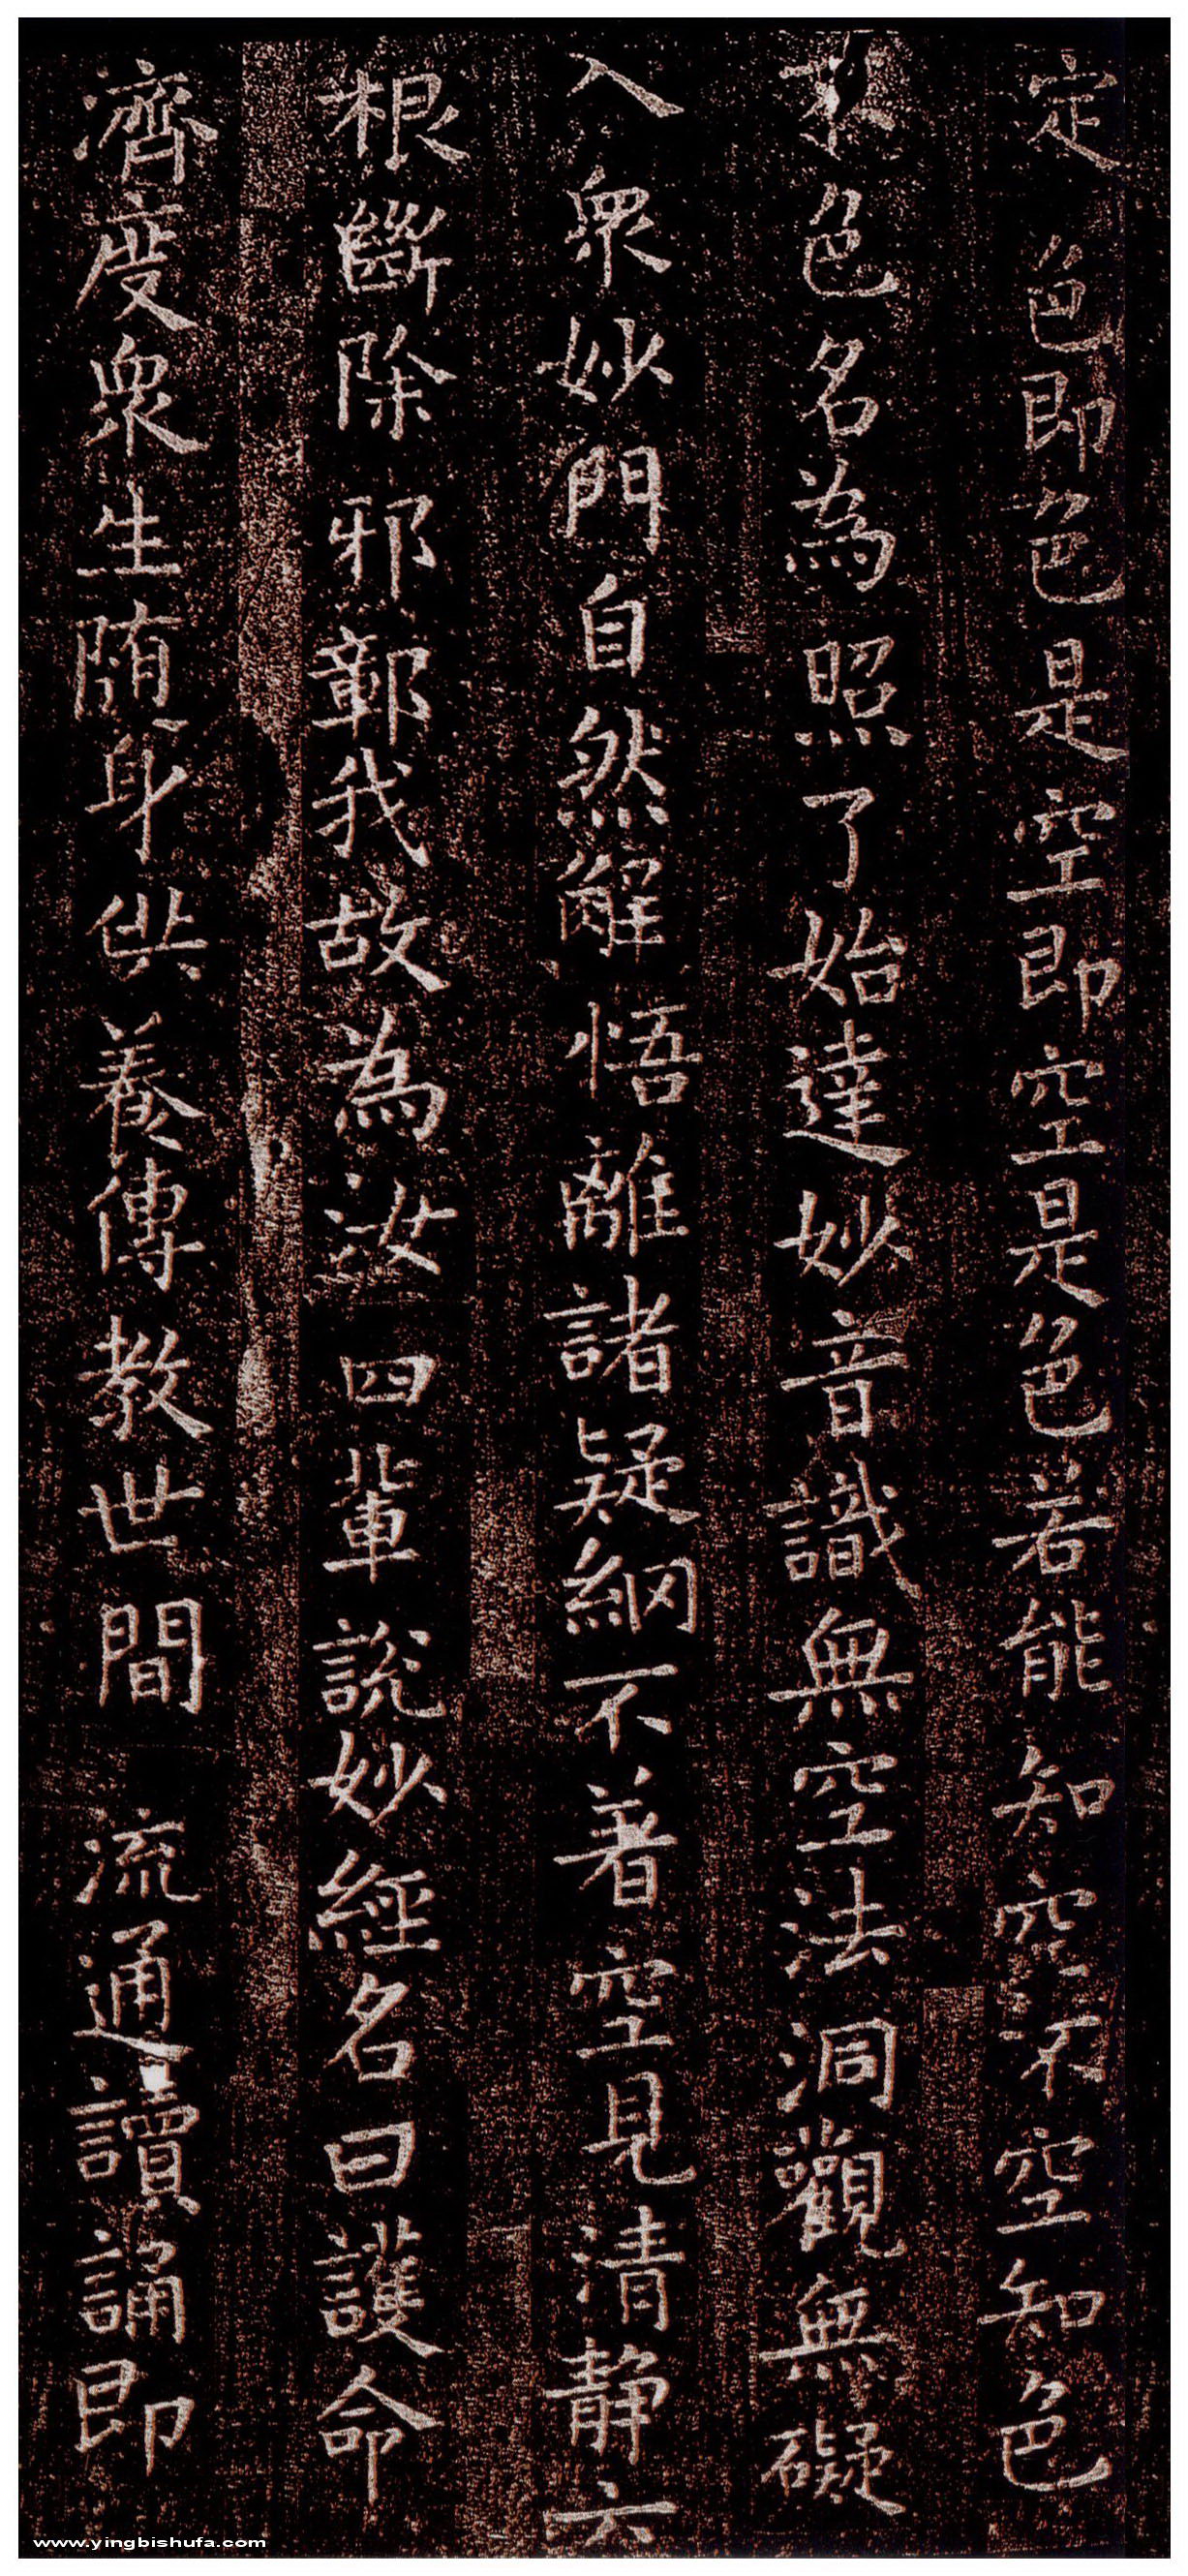 定色即色是空即空是色若能知空不空知色
不色名為照了始達妙音識無空法洞觀無礙
入衆妙門自然解悟離諸疑網不著空見清静六
根斷除邪鄣我故為汝四輩說妙經名曰護命
濟度衆生随身供養傳教世間流通讀誦即
www.yingbishufa.com